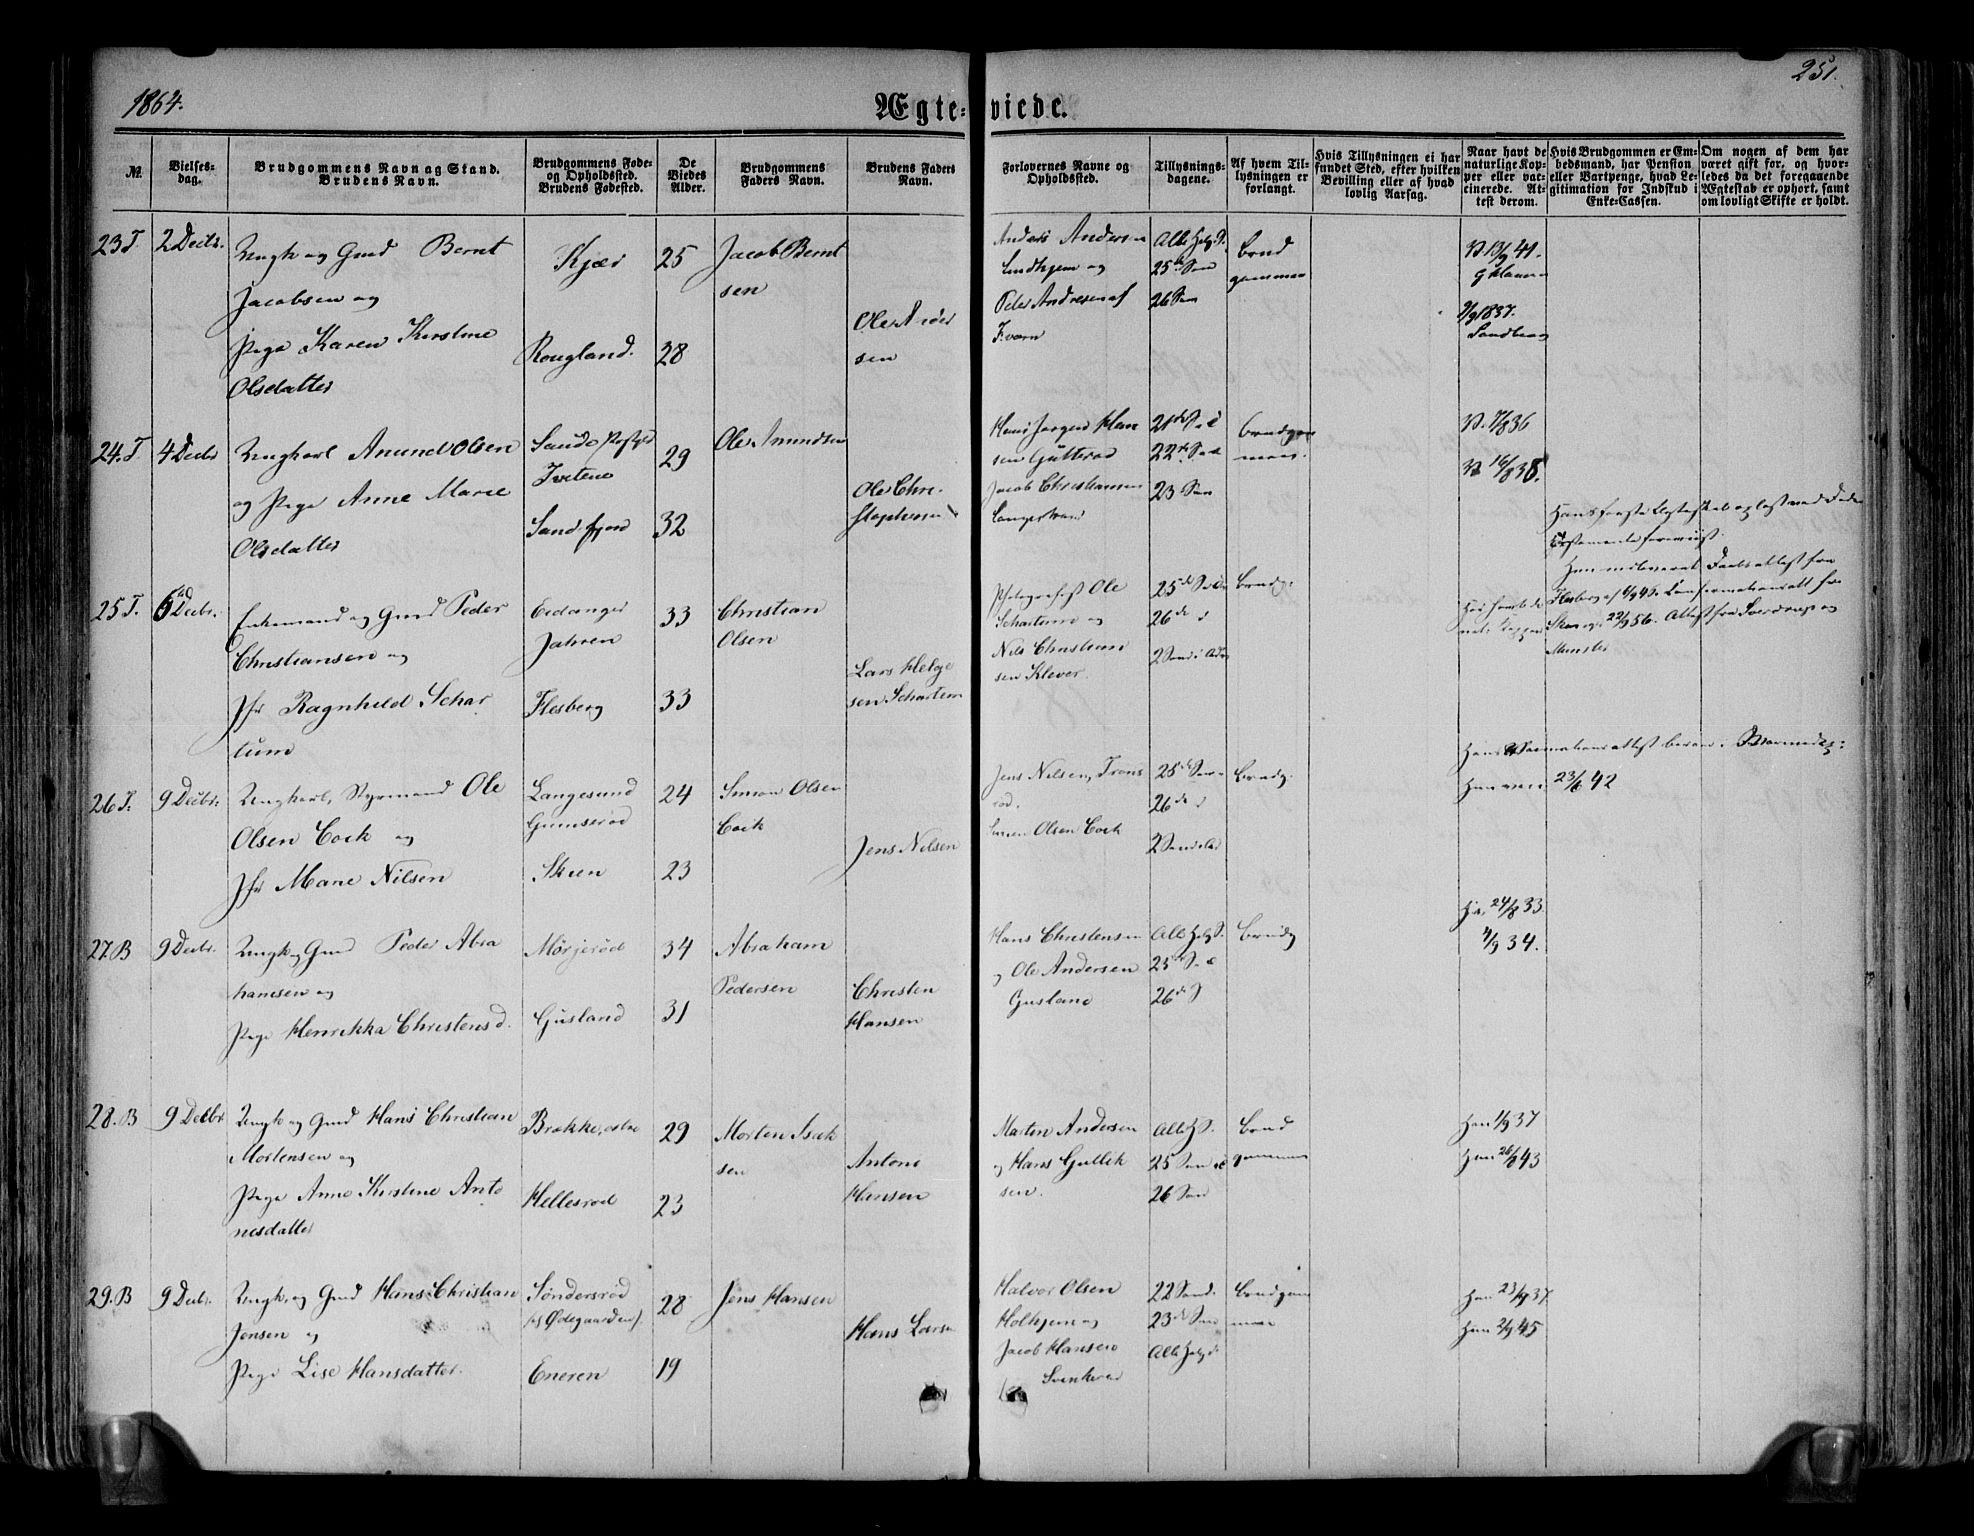 1864.
251.
Ægte-viede.
№
Vielses-
dag.
Brudgommens Navn ag Stand.
Brudens Navn.
Brudgommens Føde-
og Opholdssted.
Brudens Fødested.
De
Viedes
Alder.
Brudgommens
Faders Navn.
Brudens Faders
Navn.
Forlovernes Navne og
Opholdssted.
Tillysnings-
dagene.
Af hvem Til-
lysningen er
forlangt.
Hvis Tillysningen ei har
fundet Sted, efter hvilken
Bevilling eller af hvad
lovlig Aarsag.
Naar havt de
naturlige Kop-
per eller vac-
cinerede. At-
test derom.
Hvis Brudgommen er Em-
bedsmand, har Pension
eller Vartpenge, hvad Le-
gitimation for Indskud i
Enke-Cassen.
Om nogen af dem har
været gift før, og hvor-
ledes da det foregaaende
Ægteskab er ophørt, samt
om lovligt Skifte er holdt.
23 T. 2 Decbr. Ungk og Gmd Bernt
Jacobsen og
Pige Karen Kirstine
Olsdatter
Kjær
Rougland.
25
28
Jacob Bernt
sen
Ole Ander
sen
Anders Andersen
Lindhjem og
Peder Andresen af
Kvarn
Alle Helg. D.
25de Søn
26 Søn
Brud
gommen
V. 13/9 41.
1837.
Sandberg
24. T. 4 Decbr Ungkarl Anund Olsen
og Pige Anne Marie
Olsdatter
Tveteno
Sandefjord
29
32
Ole Amundsen
Ole Chri-
stophersen
Hans Jørgen Han
sen Gutterød
Jacob Christiansen
Langestrand
21de Sød
22de Sød
23 Søn
brudgom
men.
V. 7/8 36
V 16/8 38.
Hans første Ægteskab opløst ved Døden
25 T. 6 Decbr. Enkemand og Gmd Peder
Christiansen og
Jfr Ragnhild Schar
tum
Eidanger
Jahren
Flesberg
33
33
Christian
Olsen
Lars Helge
sen Schartum
Ole
Schartum og
Nils Christian
sen Klever.
25de Søn
26de
2 Sønd i Adv
brudg.
Flesberg
26 T. 9 Decbr. Ungkarl, Styrmand Ole
Olsen Cock og
Jfr Marie Nilsen
Langesund
Gumserød
Skien
24
23
Simon Olsen
Cock
Jens Nilsen
Jens Nilsen,
Simon Olsen Cock
25de Søn
26de
brudg.
23/6 42
27. B 9 Decbr. Ungk og Gmd Peder Abra
hamsen og
Pige Henrikka Christensd.
Mørjerød
Gusland
34
31
Abraham
Pedersen
Christen
Hansen
Hans Christensen
og Ole Andersen
Gusland
Alle Helg D.
25
26de S
brudg
24/8 33
4/9 34.
28. B 9 Decbr Ungk og Gmd Hans Christian
Mortensen og
Pige Anne Kirstine Anto
nesdatter
Brække, østre
Hellesrød
29
23
Morten Isak
sen
Antone
Hansen
Morten Andersen
og Hans Gullik
sen.
Alle H D.
25 Søn
26 Søn
brud
gommen
Han 1/9 37
Hun 26/8 43
29. B 9 Decbr. Ungk. og Gmd Hans Christian
Jensen og
Pige Lise Hansdatter.
Søndersrød
(af Ødegaarden).
Eneren
28
19
Jens Hansen
Hans Larsen
Halvor Olsen
Holhjem og
Jacob Hansen
Svinkerød
22 Sønd.
23de Søn
Alle Helg d.
brudgom
men
Han 23/9 37
Hun 2/9 45